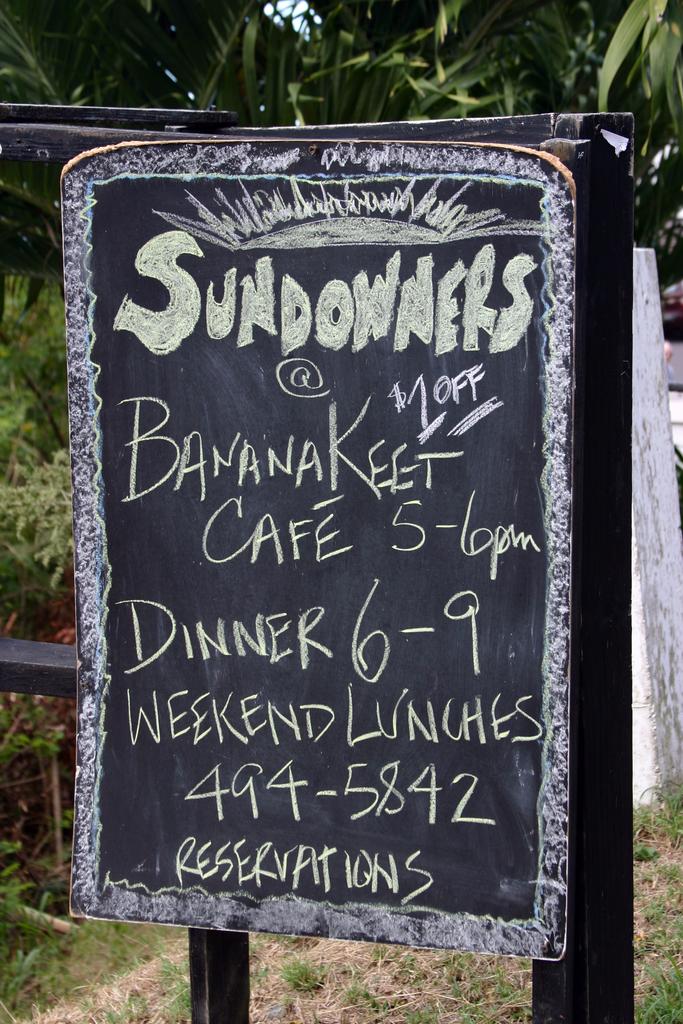 SUNDOWNERS
@
$1 OFF
BANANAKEET
CAFÉ 5-6pm
DINNER 6-9
WEEKEND LUNCHES
494-5842
RESERVATIONS